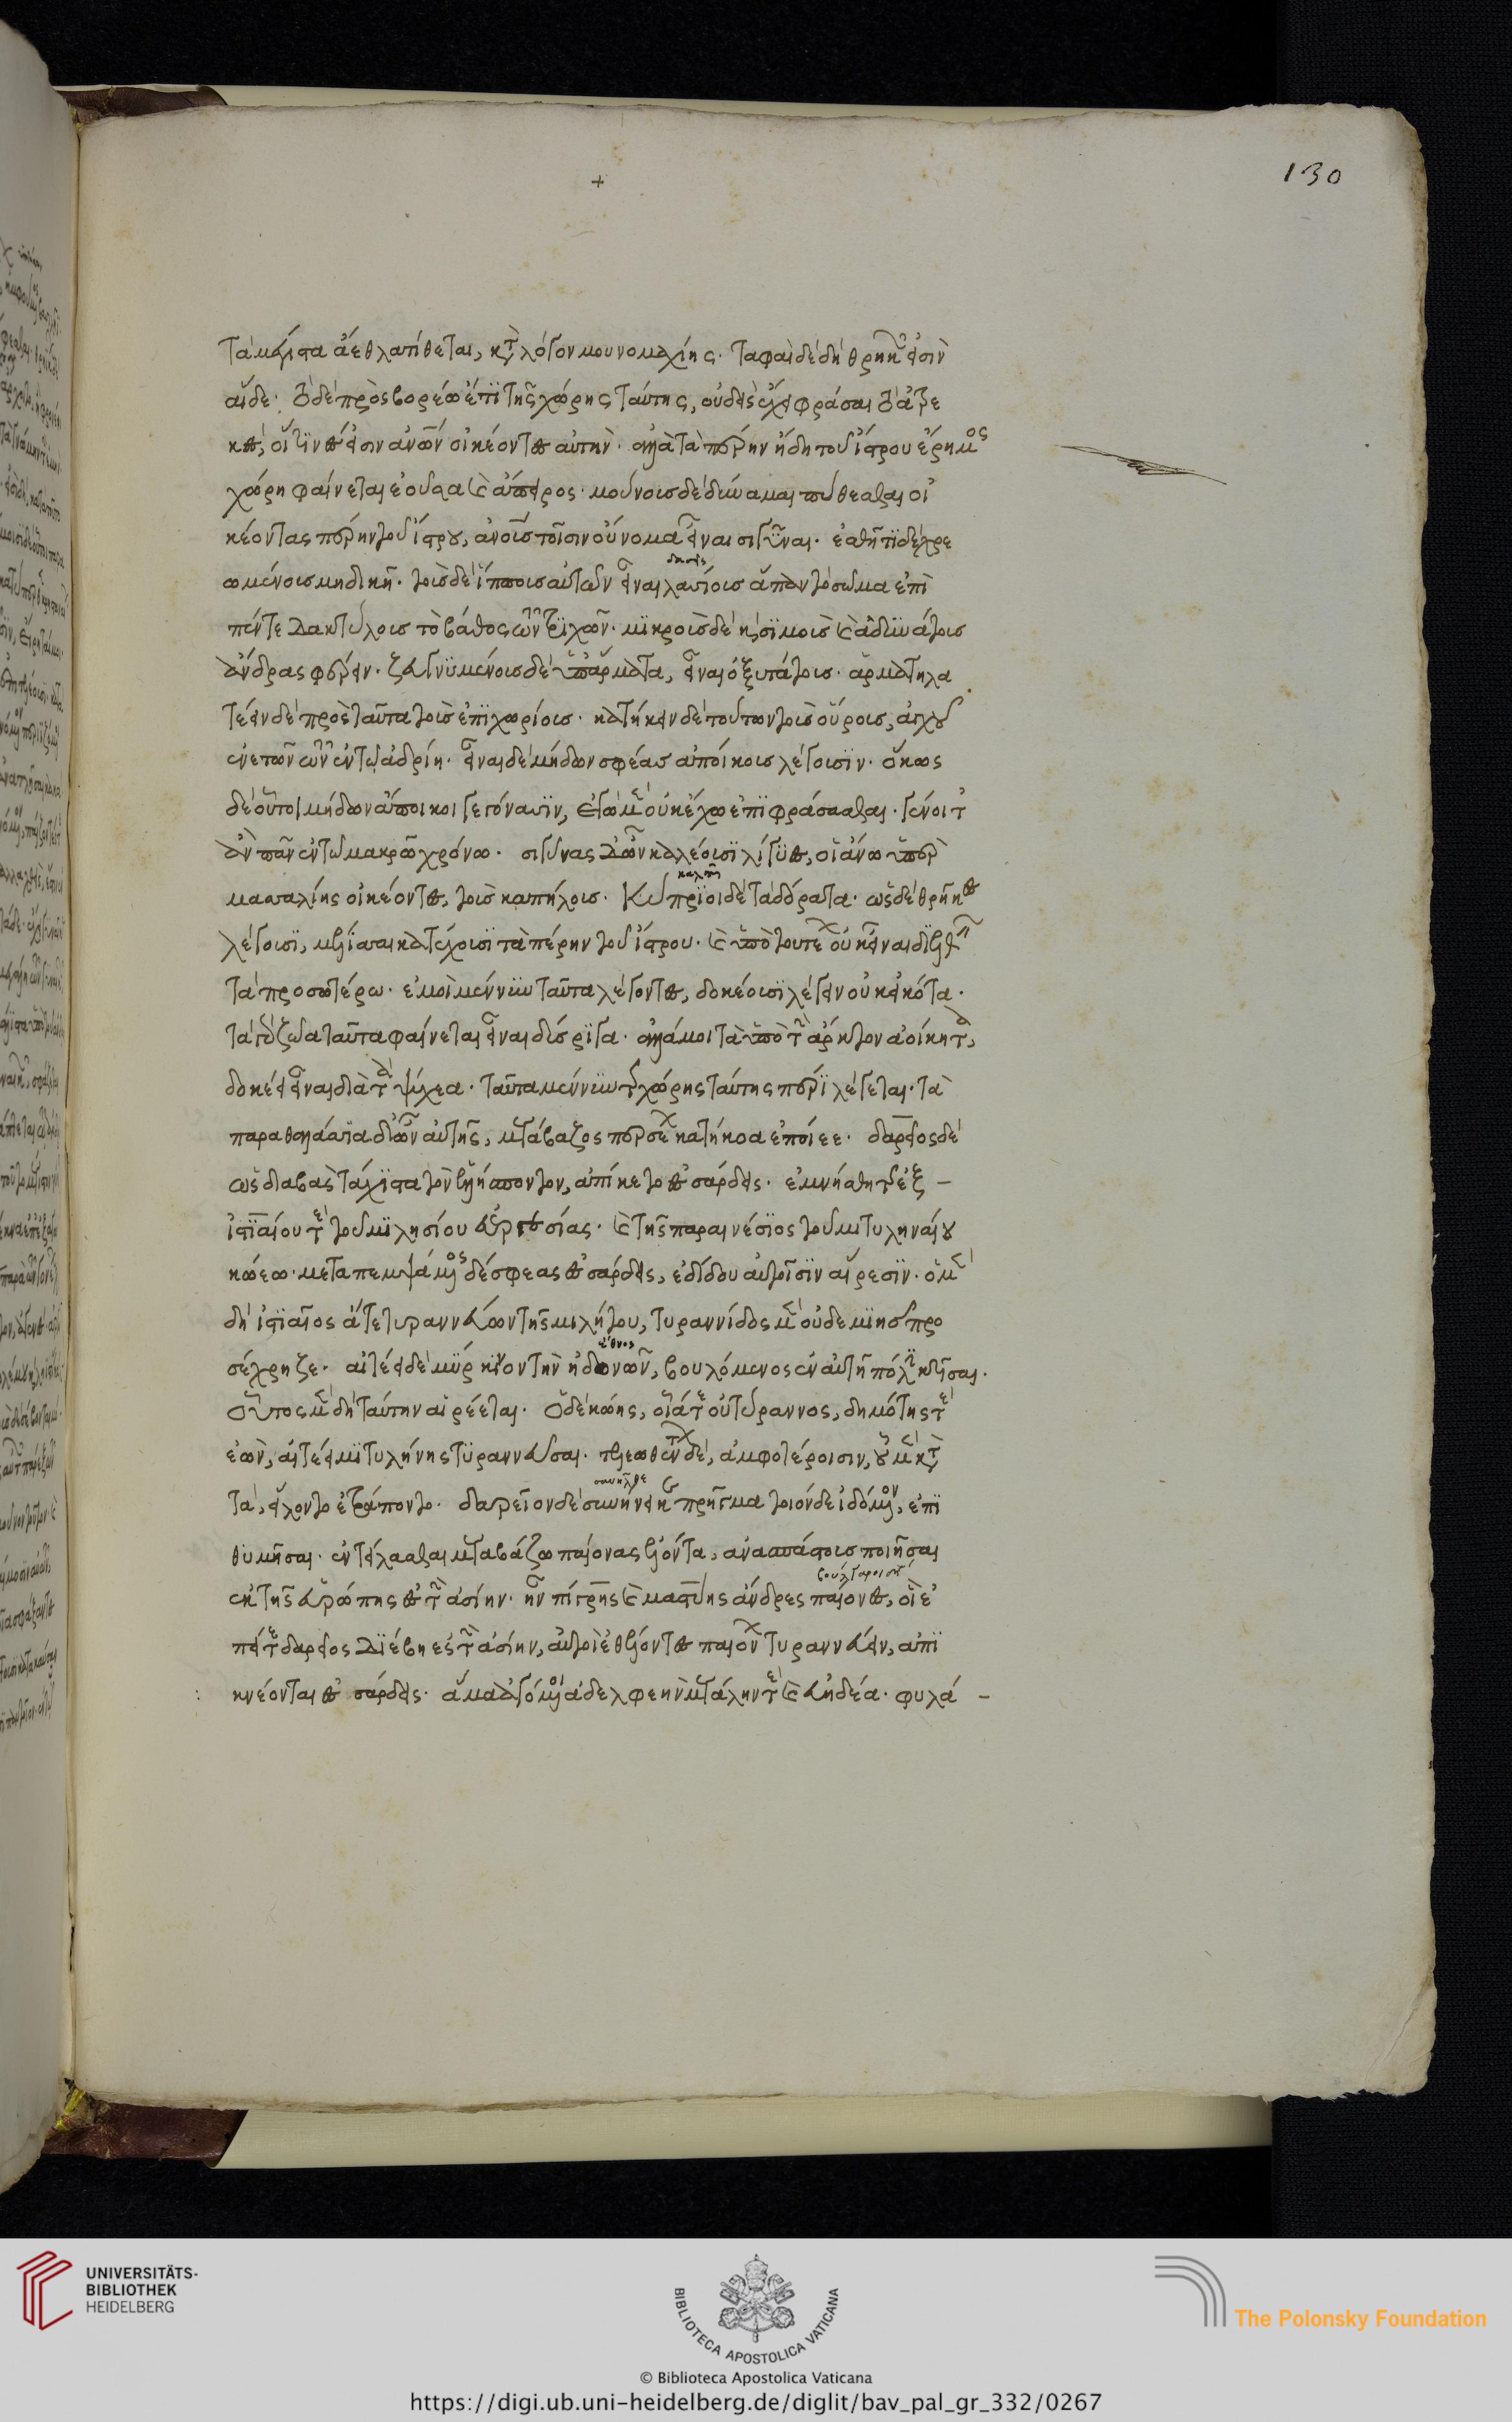 130
τὰ μέγιστα ἄεθλα τίθεται, κατὰ λόγον μουνομαχίης. ταφαὶ δὲ δὴ θρηίκων εἰσὶν
αἵδε. τὸ δὲ πρὸς βορέω ἔτι τῆς χώρης ταύτης, οὐδεὶς ἔχει φράσαι τὸ ἀτρε
κὲς, οἵτινές εἰσιν ἀνθρώπων οἰκέοντες αὐτήν. ἀλλὰ τὰ πέρην ἤδη τοῦ ἴστρου ἔρημος
χώρη φαίνεται ἐοῦσα καὶ ἄπειρος. μούνοισ δὲ δύναμαι πυθέσθαι οἰ
κέοντας πέρην τοῦ ἴστρου, ἀνθρώποις τοῖσιν οὔνομα εἶναι σιγύναι. ἐσθῆτι δὲ χρε
ωμένοισ μηδικῇ. τοῖσ δὲ ἵπποισ αὐτῶν εἶναι λασίοισ ἅπαν τὸ σῶμα ἐπὶ
πέντε δακτύλοισ τὸ βάθος τῶν τριχῶν. μικροῖσ δὲ καὶ σιμοῖσ καὶ ἀδυνάτοισ
ἄνδρας φέρειν. ζευγνυμένοισ δὲ ὑπ' ἅρματα, εἶναι ὀξυτάτοισ. ἁρματηλα
τέειν δὲ πρὸς ταῦτα τοὺσ ἐπιχωρίοισ. κατήκειν δὲ τούτων τοὺσ οὔροισ, ἀγχοῦ
ἐνετῶν τῶν ἐν τῷ ἀδρίῃ. εἶναι δὲ μήδων σφέασ ἀποίκοισ λέγοισιν. ὅκως
δὲ οὗτοι μήδων ἄποικοι γεγόνασιν, ἐγὼ μὲν οὐκ ἔχω ἐπιφράσασθαι. γένοιτο
δ' ἂν πᾶν ἐν τῷ μακρῷ χρόνῳ. σιγύνας δ' ὦν καλέοισι λίγυες, οἱ ἄνω ὑπὲρ
μασσαλίης οἰκέοντες, τοὺσ καπήλοισ. Κύπριοι δὲ τὰ δόρατα. ὡς δὲ θρήικες
λέγοισι, μέλισσαι κατέχοισι τὰ πέρην τοῦ ἴστρου. καὶ ὑπὸ τουτέων οὐκ εἶναι διελθεῖν
τὰ προσωτέρω. ἐμοὶ μέν νυν ταῦτα λέγοντες, δοκέοισι λέγειν οὐκ εἰκότα.
τὰ γὰρ ζῶα ταῦτα φαίνεται εἶναι δύσριγα. ἀλλά μοι τὰ ὑπὸ τὴν ἄρκτον ἀοίκητα,
δοκέει εἶναι διὰ τὰ ψύχεα. ταῦτα μέν νυν τῆς χώρης ταύτης πέρι λέγεται. τὰ
παραθαλάσσια δ' ὦν αὐτῆς, μεγάβαζος περσέων κατήκοα ἐποίεε. δαρεῖος δὲ
ὡς διαβὰς τάχιστα τὸν ἑλλήσποντον, ἀπίκετο ἐς σάρδεις. ἐμνήσθη τῆς ἐξ –
ἱστιαίου τε τοῦ μιλησίου εὐεργεσίας. καὶ τῆς παραινέσιος τοῦ μιτυληναίου
κώεω. μεταπεμψάμενος δέ σφεας ἐς σάρδεις, ἐδίδου αὐτοῖσιν αἵρεσιν. ὁ μὲν
δὴ ἱστιαῖος ἅτε τυραννεύων τῆς μιλήτου, τυραννίδος μὲν οὐδεμιῆσ προ
σέχρηζε. αἰτέει δὲ μύρκινον τὴν ἠδωνῶν, βουλόμενος ἐν αὐτῇ πόλιν κτίσαι.
οὗτος μὲν δὴ ταύτην αἱρέεται. ὁ δὲ κώης, οἷά τε οὐ τύραννος, δημότης τε
ἐὼν, αἰτέει μιτυλήνης τυραννεῦσαι. τελεωθέντων δὲ, ἀμφοτέροισιν, οὗτοι μὲν κατὰ
τὰ, εἵλοντο ἐτράποντο. δαρεῖον δὲ συνήνεικε πρῆγμα τοιόνδε ἰδόμενον, ἐπι
θυμῆσαι. ἐντείλασθαι μεγαβάζω παίονας ἑλόντα, ἀνασπάστοισ ποιῆσαι
ἐκ τῆς εὐρώπης ἐς τὴν ἀσίην. ἦν πίγρης καὶ μαστύης ἄνδρες παίονες, οἳ ἐ
πεί τε δαρεῖος διέβη ἐς τὴν ἀσίην, αὐτοὶ ἐθέλοντες παιόνων τυραννεύειν, ἀπι
κνέονται ἐς σάρδεις. ἅμα ἀγόμενοι ἀδελφεὴν μεγάλην τε καὶ εὐειδέα. φυλά –
UNIVERSITÄTS-
BIBLIOTHEK
HEIDELBERG
BIBLIOTECA APOSTOLICA VATICANA
The Polonsky Foundation
© Biblioteca Apostolica Vaticana
https://digi.ub.uni-heidelberg.de/diglit/bav_pal_gr_332/0267